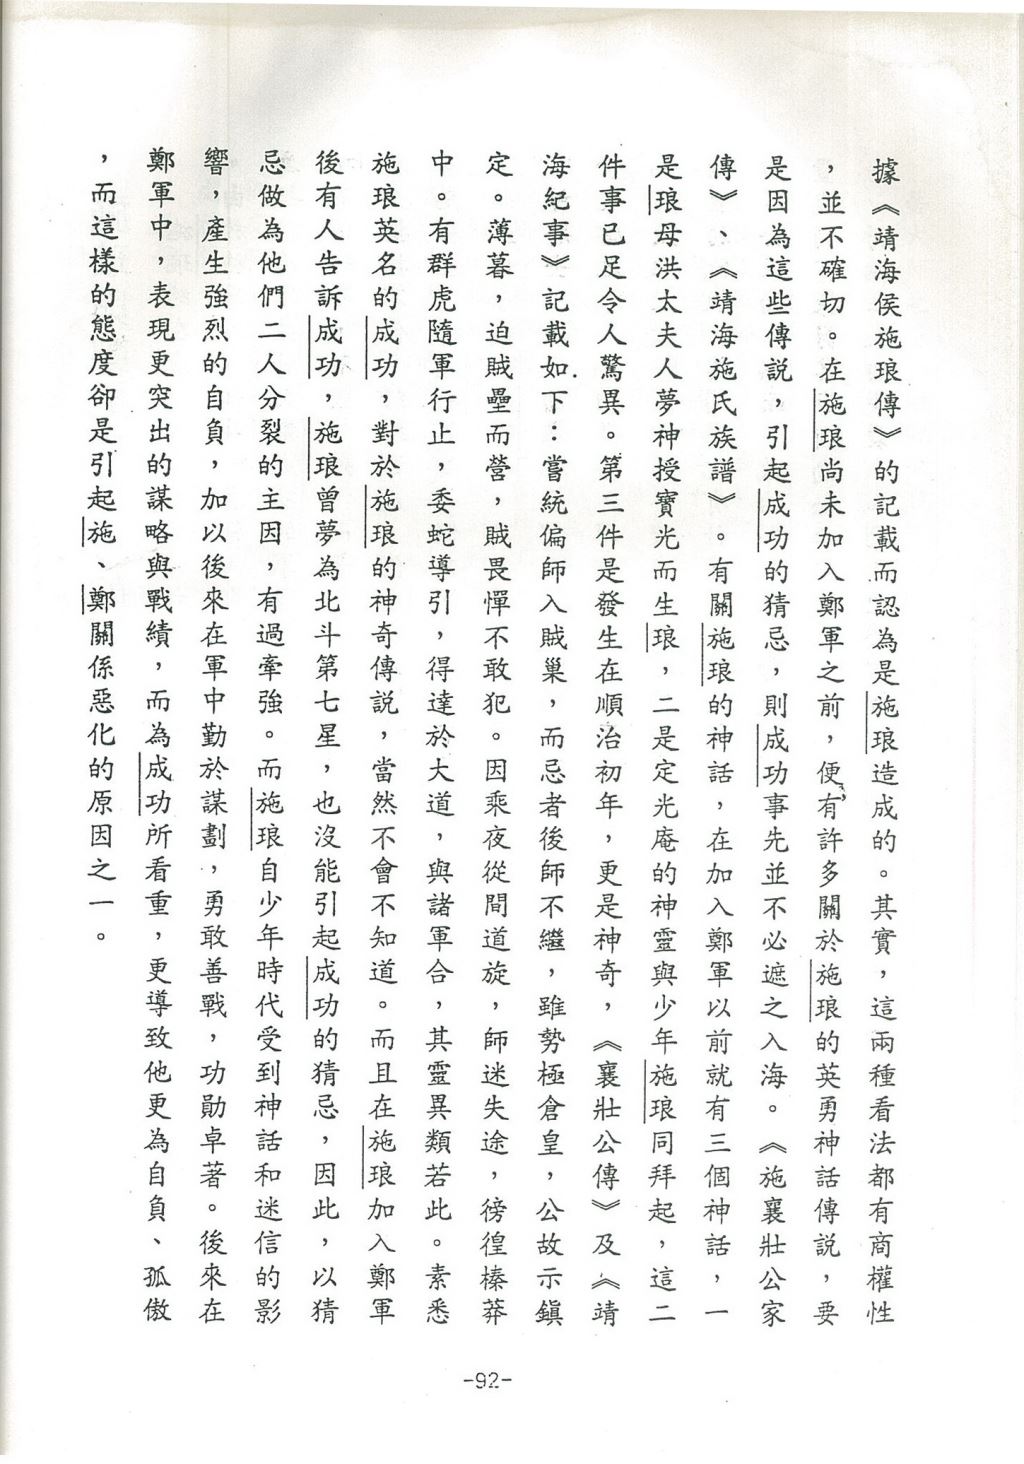 據《靖海侯施琅傳》的記載而認為是施琅造成的。其實，這兩種看法都有商權性
，並不確切。在施琅尚未加入鄭軍之前，便有許多關於施琅的英勇神話傳説，要
是因為這些傳説，引起成功的猜忌，則成功事先並不必遮之入海。《施襄壯公家
傳》、《靖海施氏族譜》。有關施琅的神話，在加入鄭軍以前就有三個神話，一
是琅母洪太夫人夢神授寶光而生琅，二是定光庵的神靈與少年施琅同拜起，這二
件事已足令人驚異。第三件是發生在順治初年，更是神奇，《襄壯公傳》及《靖
海紀事》記載如下：嘗統偏師入賊巢，而忌者後師不繼，雖勢極倉皇，公故示鎮
定。薄暮，迫賊壘而營，賊畏憚不敢犯。因乘夜從間道旋，師迷失途，徬徨榛莽
中。有群虎隨軍行止，委蛇導引，得達於大道，與諸軍合，其靈異類若此。素悉
施琅英名的成功，對於施琅的神奇傳説，當然不會不知道。而且在施琅加入鄭軍
後有人告訴成功，施琅曾夢為北斗第七星，也沒能引起成功的猜忌，因此，以猜
忌做為他們二人分裂的主因，有過牽強。而施琅自少年時代受到神話和迷信的影
響，產生強烈的自負，加以後來在軍中勤於謀劃，勇敢善戰，功勛卓著。後來在
鄭軍中，表現更突出的謀略與戰績，而為成功所看重，更導致他更為自負、孤傲
，而這樣的態度卻是引起施、鄭關係惡化的原因之一。
-92-